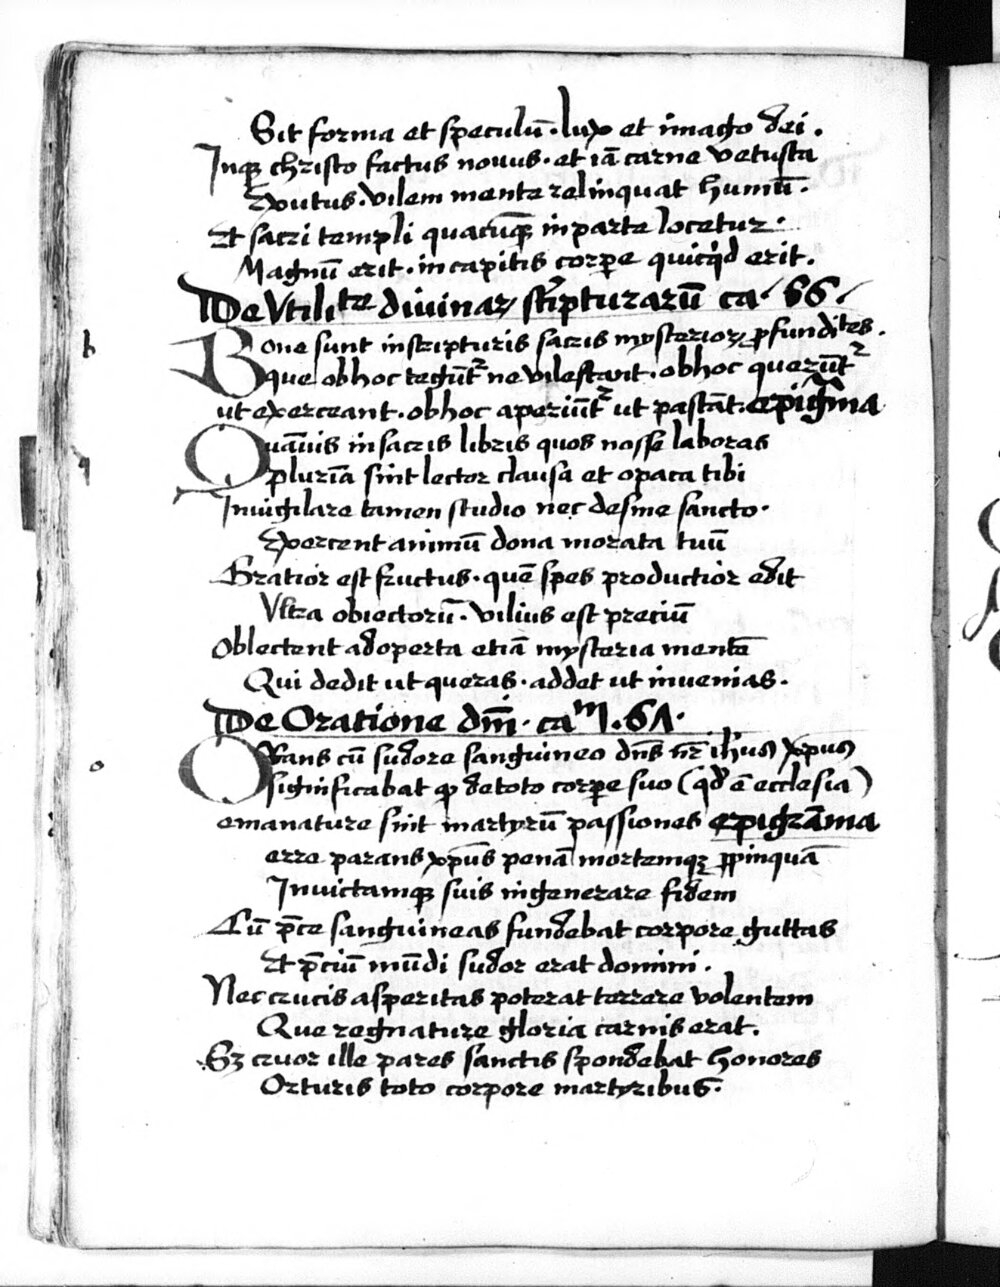 Sit forma et speculū · lux et imago dei .
Inqꝫ christo factus novus · et iā carne vetusta
Exutus · vilem mente relinquat humū ·
Et sacri templi quacūqꝫ in parte locetur ·
Magnū erit · in capitis corꝑe quicq̇d erit .
De Vtilitate divinaꝝ scripturarū ca · 66 ·
Bone sunt in scripturis sacris mysterioꝝ ꝓfunditates .
que ob hoc tegūtᷣ ne vilescant . ob hoc querūtᷣ
ut exerceant . ob hoc aperiūtᷣ ut pascāt . epigrāma
Quāvis in sacris libris quos nosse laboras
plurīa sint lector clausa et opaca tibi
Invigilare tamen studio nec desine sancto ·
Exercent animū dona morata tuū
Gratior est fructus · quē spes productior edit
Vltra obiectorū · vilius est preciū
Oblectent adoperta etiā mysteria mentē
Qui dedit ut queras · addet ut invenias .
De Oratione dnī · caᵐ · 67 ·
Orans cū sudore sanguineo dn̄s nr̄ ihūs xp̄us
significabat ꝙ de toto corꝑe suo ( qd̄ ē ecclesia )
emanature sint martyrū passiones epigrāma
erre parans xp̄us penā mortemqꝫ ꝓpinquā
Invictamqꝫ suis ingenerare fidem
Cū p̄ce sanguineas fundebat corpore guttas
Et p̄ciū mūdi sudor erat domini .
Nec crucis asperitas poterat terrere volentem
Que regnature gloria carnis erat .
Sꝫ cruor ille pares sanctis spondebat honores
Orturis toto corpore martyribus ·